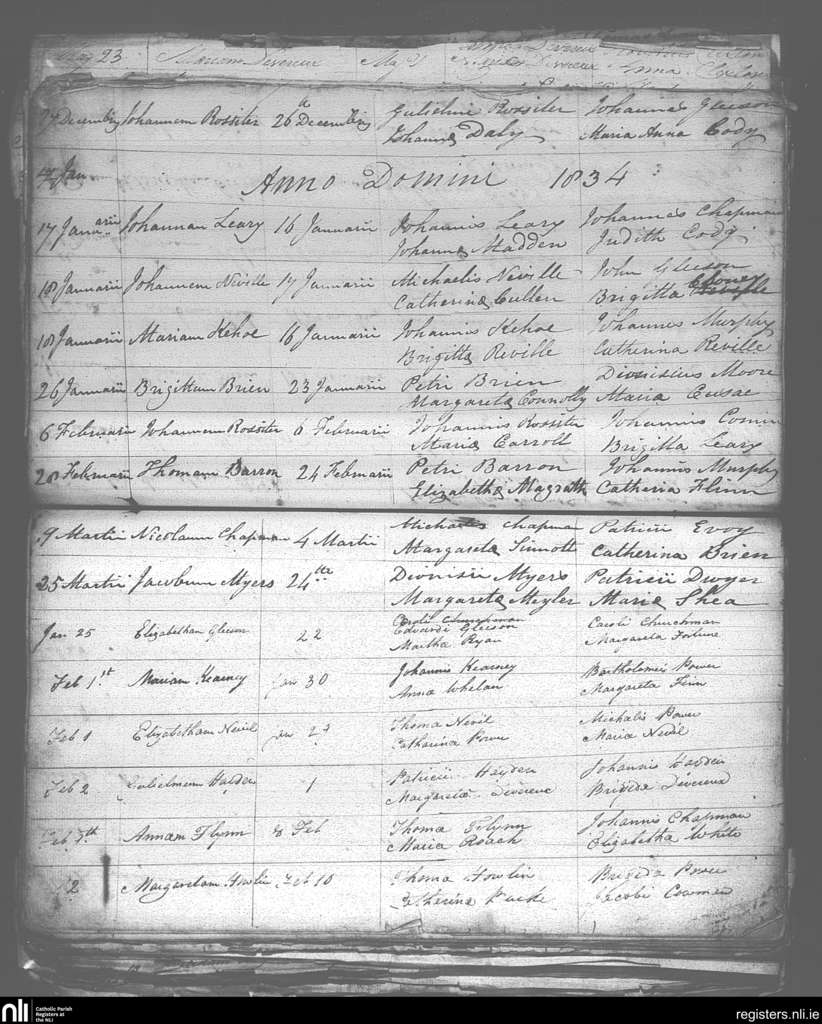 May 23 Mariam Devereux May 21
Devereux Anna
27 Decembris Johannem Rossiter 26a Decembris Gulielmi Rossiter Johannes Gleeson
Johannæ Daly Maria Anna Cody
17 Jan
Anno Domini 1834
17 Januarii Johannan Leary 16 Januarii Johannis Leary Johannes Chapman
Johannæ Madden Judith Cody
18 Januarii Johannem Neville 17 Januarii Michaelis Neville John Gleeson
Catherinæ Cullen Brigitta
18 Januarii Mariam Kehoe 16 Januarii Johannis Kehoe Johannes Murphy
Brigittæ Reville Catherina Reville
26 Januarii Brigittam Brien 23 Januarii Petri Brien Dionisius Moore
Margaretæ Connolly Maria Cusac
6 Februarii Johannem Rossiter 6 Februarii Johannis Rossiter Johannis
Mariæ Carroll Brigitta Leary
28 Februarii Thomam Barron 24 Februarii Petri Barron Johannis Murphy
Elizabethæ Magrath Catheria Flinn
9 Martii Nicolaum Chapman 4 Martii Michaelis Chapman Patricii Evoy
Margaretæ Sinnott Catherina Brien
25 Martii Jacobum Myers 24th Dionisii Myers Patricii Dwyer
Margaretæ Meyler Mariæ Shea
Jan 25 Elizabethan Gleeson 22 Edvardi Gleeson Caroli Churchman
Martha Ryan Margareta
Feb 1st Mariam Kearney Jan 30 Johannis Kearney Bartholomei Power
Anna Whelan Margareta Finn
Feb 1 Elizabetham Nevil Jan 27 Thoma Nevil Michalis Power
Catharina Power Maria Nevil
Feb 2 Gulielmum Hayden 1 Patricii Hayden Johannis Hayden
Margareta Devereux Brigida Devereux
Feb 9th Annam Flynn 8 Feb Thoma Flynn Johannis Chapman
Maria Roach Elizabetha White
12 Margaretam Howlin Feb 10 Thoma Howlin Brigida Power
Catherina Jacobi
nli Catholic Parish Registers at the NLI
registers.nli.ie